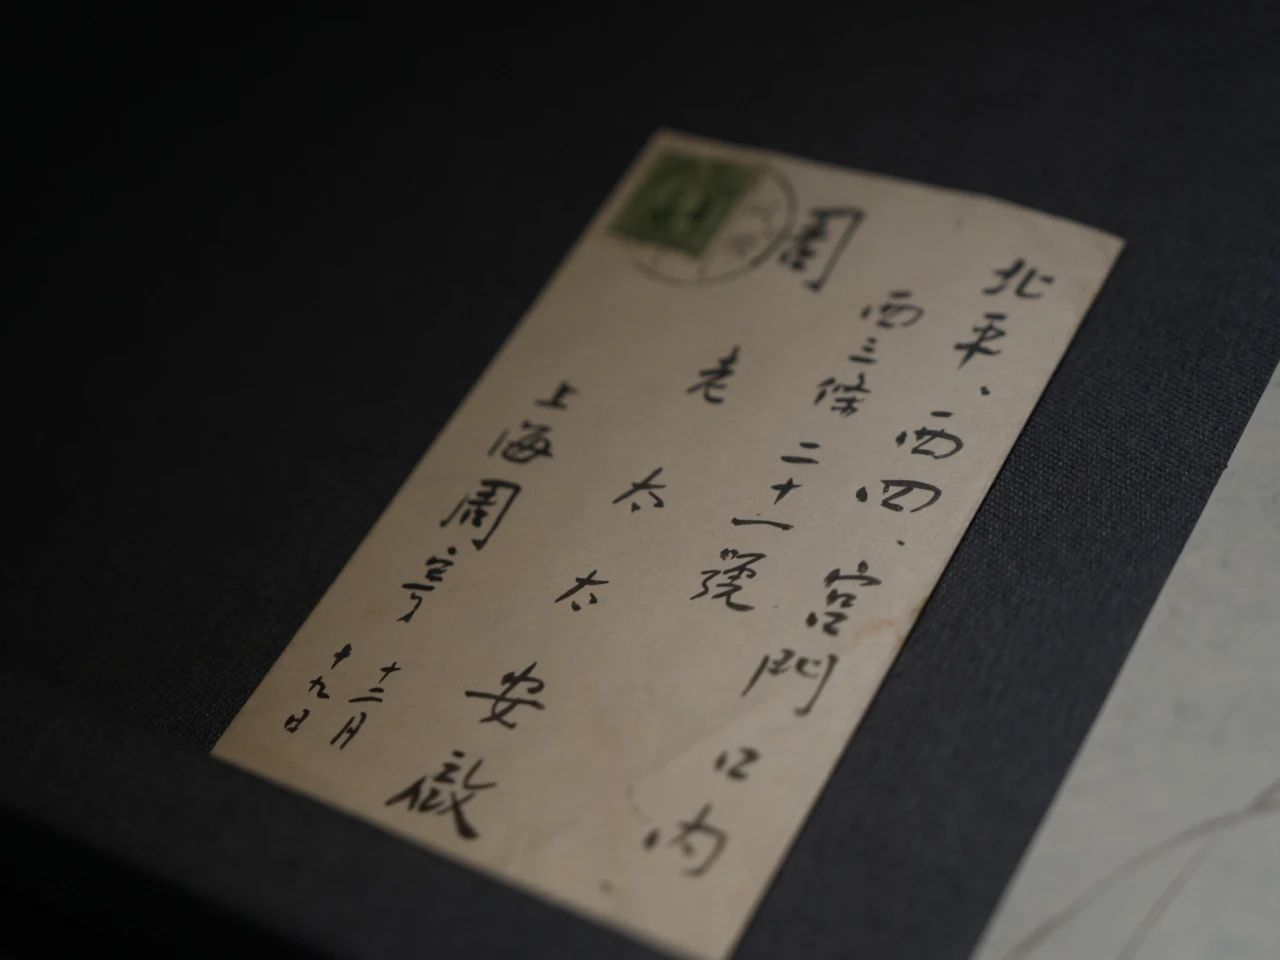 北平、西四、宮門口内
西三條二十一號
周老太太安啟
上海周寄
十二月
十九日